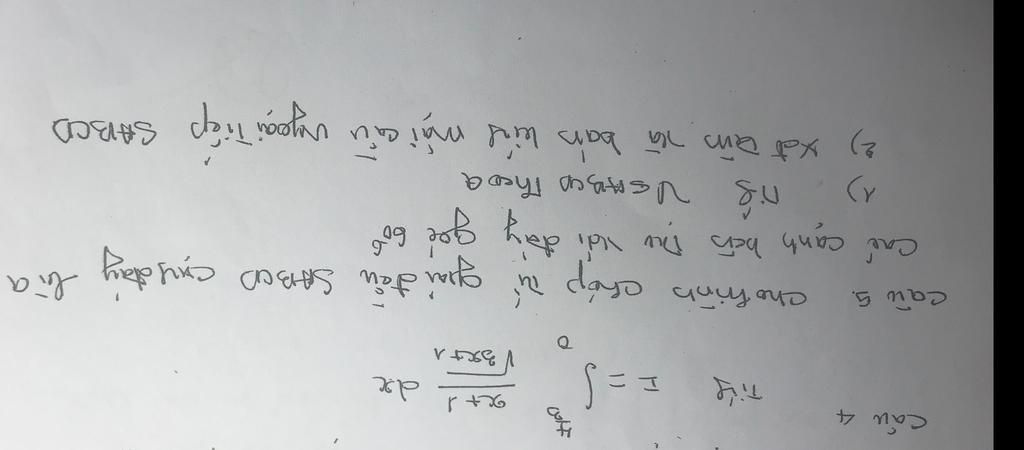 Câu 4
Tính I = ∫_0^{4/3} \frac{x+1}{\sqrt{3x+1}} dx
Câu 5. Cho hình chóp tứ giác đều SABCD cạnh đáy là a
Các cạnh bên tạo với đáy góc 60°
1) Tính V_{SABCD} theo a
2) Xđ tâm và bán kính mặt cầu ngoại tiếp SABCD